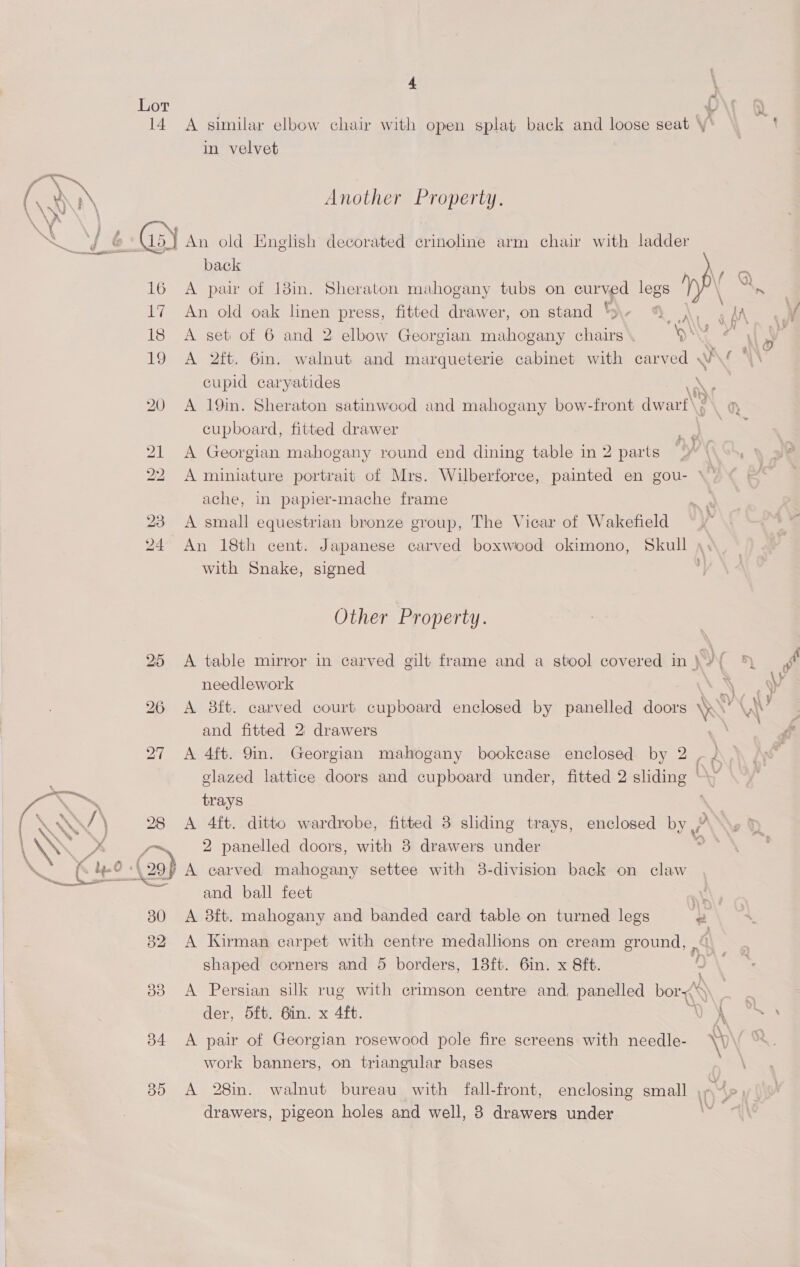 4
Lot
14 A similar elbow chair with open splat back and loose seat
in velvet
Another Property.
15 An old English decorated crinoline arm chair with ladder
back
16 A pair of 13in. Sheraton mahogany tubs on curved legs
17 An old oak linen press, fitted drawer, on stand
18 A set of 6 and 2 elbow Georgian mahogany chairs
19 A 2ft. 6in. walnut and marqueterie cabinet with carved
cupid caryatides
20 A 19in. Sheraton satinwood and mahogany bow-front dwarf
cupboard, fitted drawer
21 A Georgian mahogany round end dining table in 2 parts
22 A miniature portrait of Mrs. Wilberforce, painted en gou-
ache, in papier-mache frame
23 A small equestrian bronze group, The Vicar of Wakefield
24 An 18th cent. Japanese carved boxwood okimono, Skull
with Snake, signed
Other Property.
25 A table mirror in carved gilt frame and a stool covered in
needlework
26 A 3ft. carved court cupboard enclosed by panelled doors
and fitted 2 drawers
27 A 4ft. 9in. Georgian mahogany bookcase enclosed by 2
glazed lattice doors and cupboard under, fitted 2 sliding
trays
28 A 4ft. ditto wardrobe, fitted 3 sliding trays, enclosed by
2 panelled doors, with 3 drawers under
29 A carved mahogany settee with 3-division back on claw
and ball feet
30 A 3ft. mahogany and banded card table on turned legs
32 A Kirman carpet with centre medallions on cream ground,
shaped corners and 5 borders, 13ft. 6in. x 8ft.
33 A Persian silk rug with crimson centre and panelled bor-
der, 5ft. 6in. x 4ft.
34 A pair of Georgian rosewood pole fire screens with needle-
work banners, on triangular bases
35 A 28in. walnut bureau with fall-front, enclosing small
drawers, pigeon holes and well, 3 drawers under